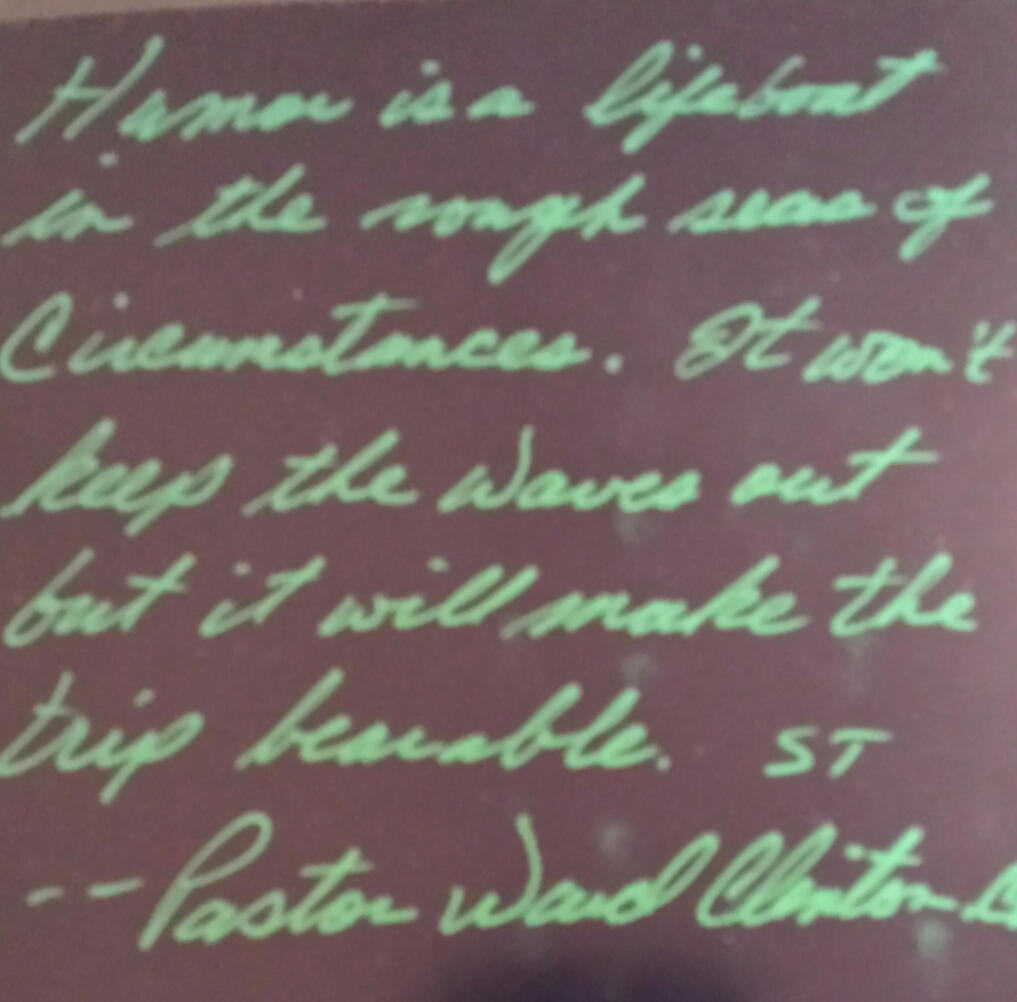 Humor is a lifeboat
in the rough seas of
Circumstances. It won't
keep the waves out
but it will make the
trip bearable. ST
-- Pastor Ward Clinton